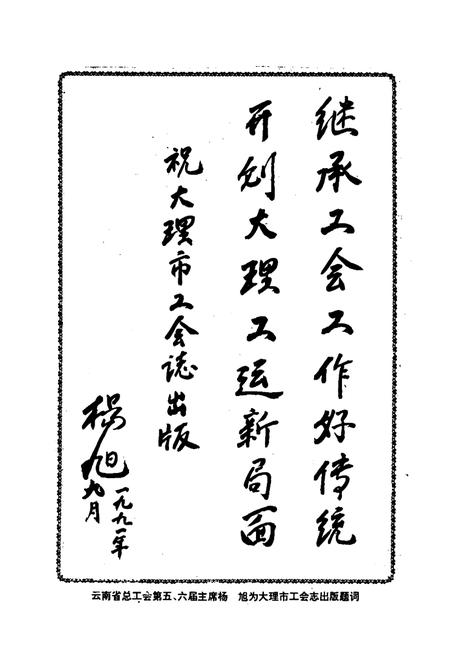 继承工会工作好传统
开创大理工运新局面
祝大理市工会志出版
杨旭
一九九一年
九月
云南省总工会第五、六届主席杨 旭为大理市工会志出版题词